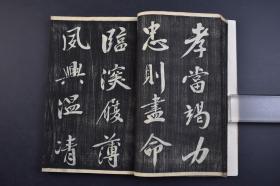 孝當竭力
忠則盡命
臨深履薄
夙興溫凊